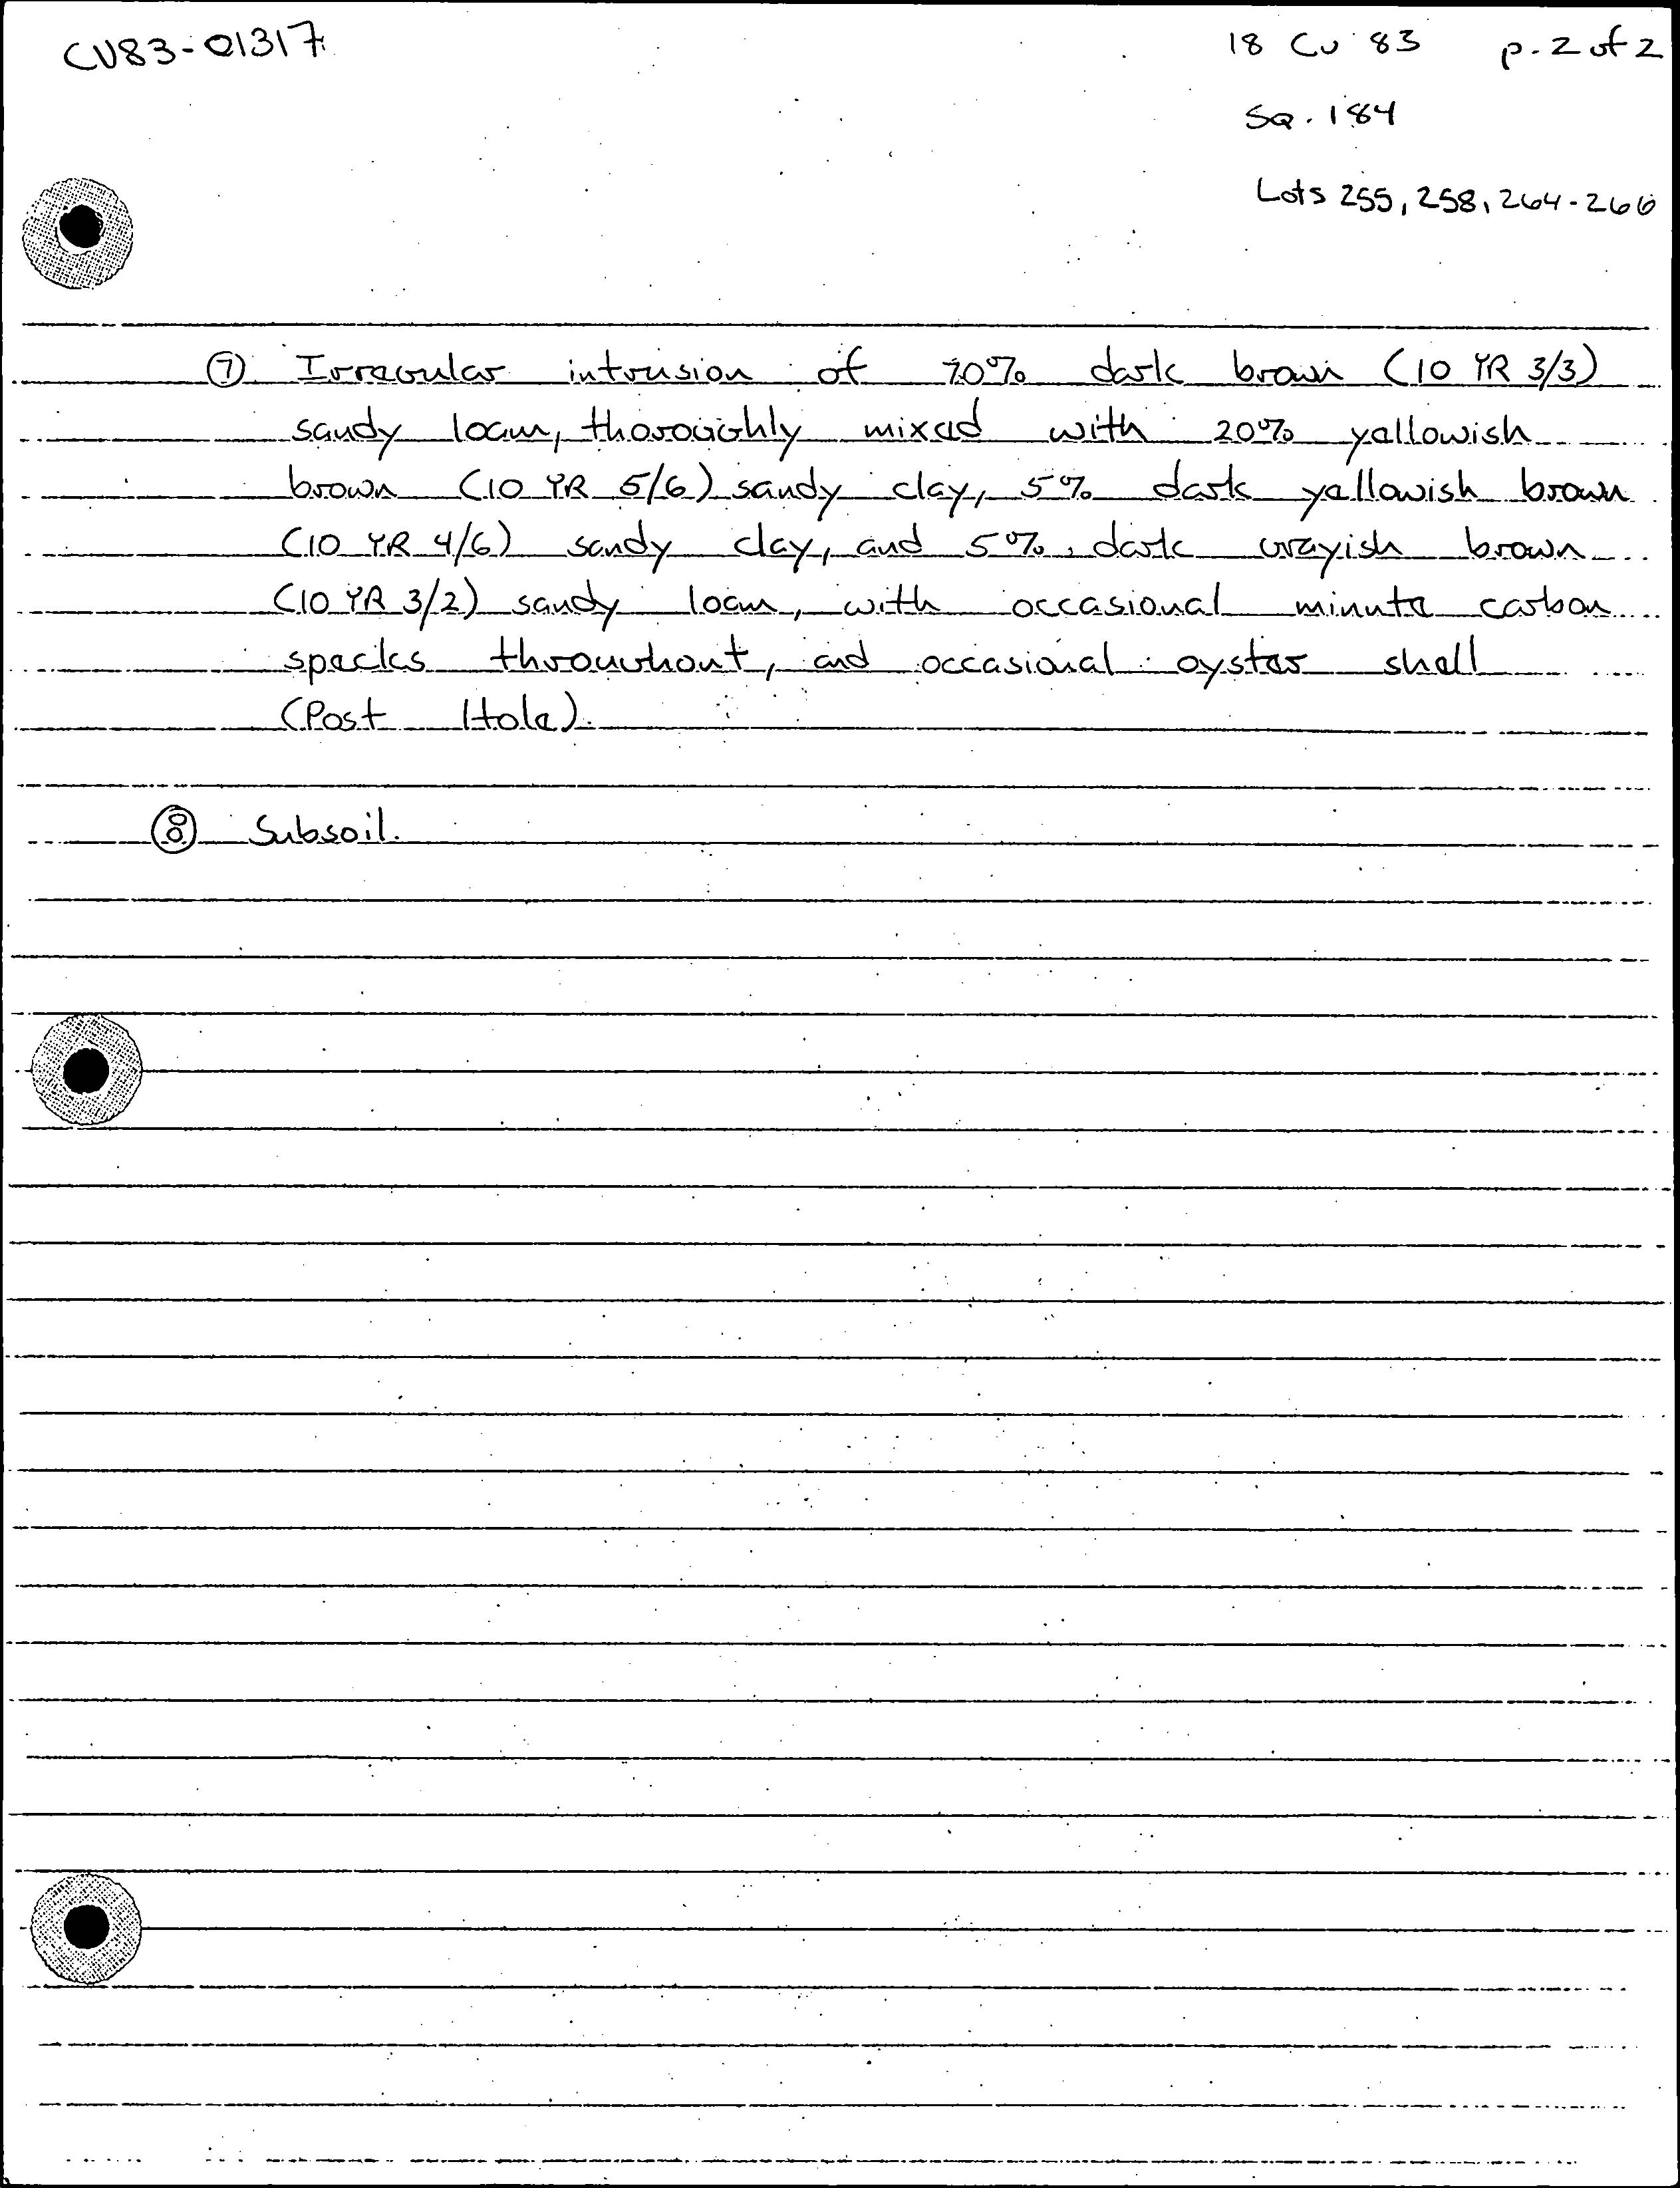 CV83-01317
18 Cv 83 p. 2 of 2
SQ. 184
Lots 255, 258, 264-266
⑦ Irregular intrusion of 70% dark brown (10 YR 3/3)
sandy loam, thoroughly mixed with 20% yellowish
brown (10 YR 5/6) sandy clay, 5% dark yellowish brown
(10 YR 4/6) sandy clay, and 5% dark grayish brown
(10 YR 3/2) sandy loam, with occasional minute carbon
specks throughout, and occasional oyster shell
(Post Hole).
⑧ Subsoil.